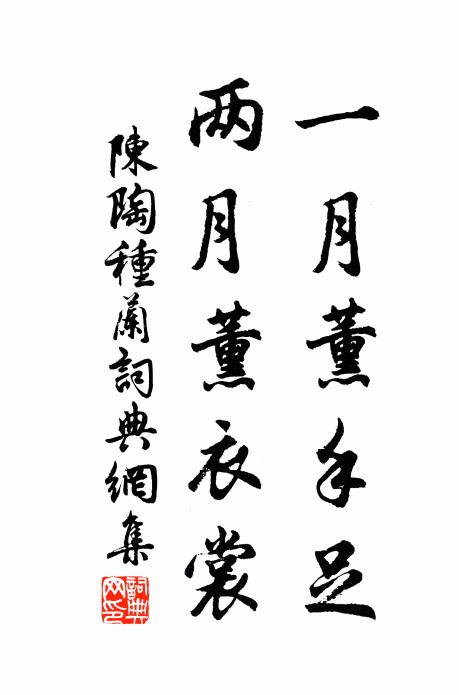 一月薰手足
两月薰衣裳
陳陶種蘭詞典網集
詞典網印